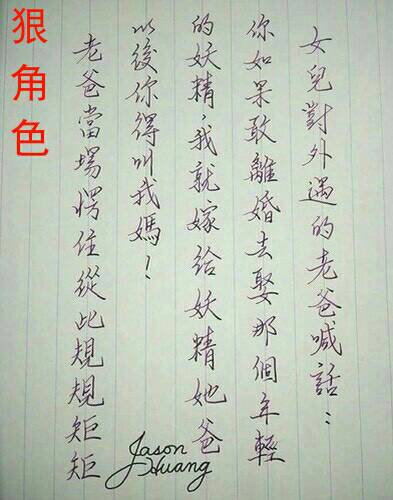 狠角色
女兒對外遇的老爸喊話：
你如果敢離婚去娶那個年輕
的妖精，我就嫁給妖精她爸
以後你得叫我媽！
老爸當場愣住從此規規矩矩
Jason
Huang